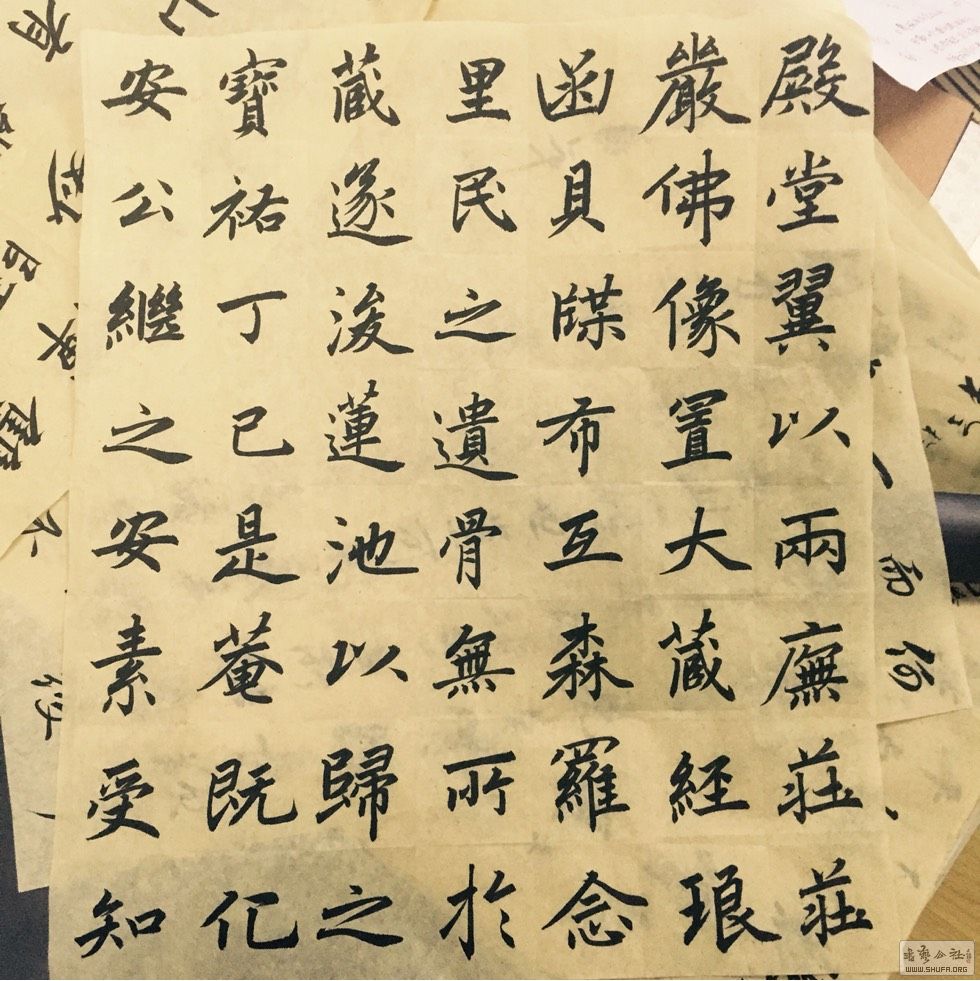 殿堂翼以兩廡莊莊
嚴佛像置大藏經琅
函貝牒布互森羅念
里民之遺骨無所於
藏遂浚蓮池以歸之
寶祐丁巳是菴既化
安公繼之安素受知
書藝公社
WWW.SHUFA.ORG